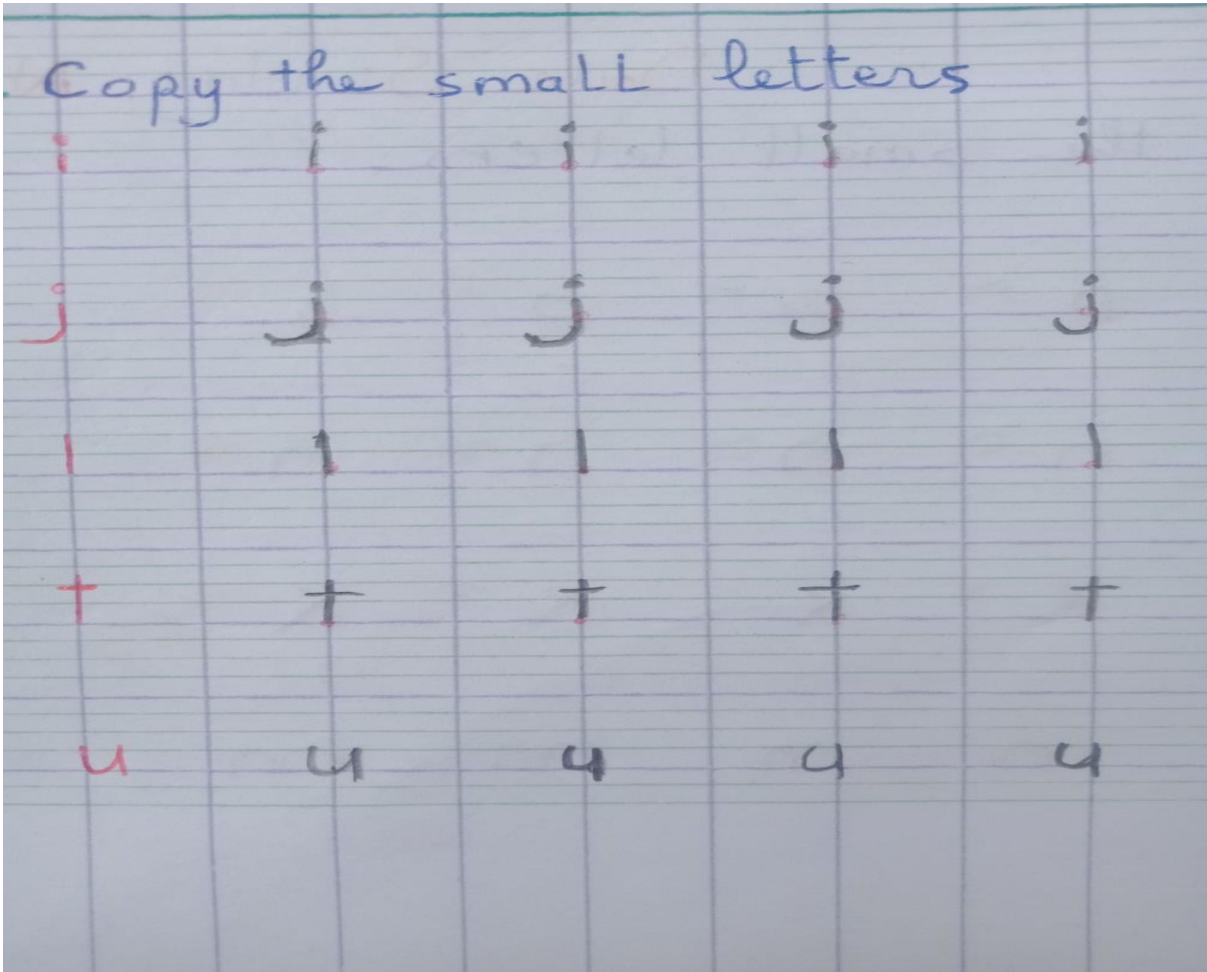 Copy the small letters
i i i i i
j j j j j
l l l l l
t t t t t
u u u u u